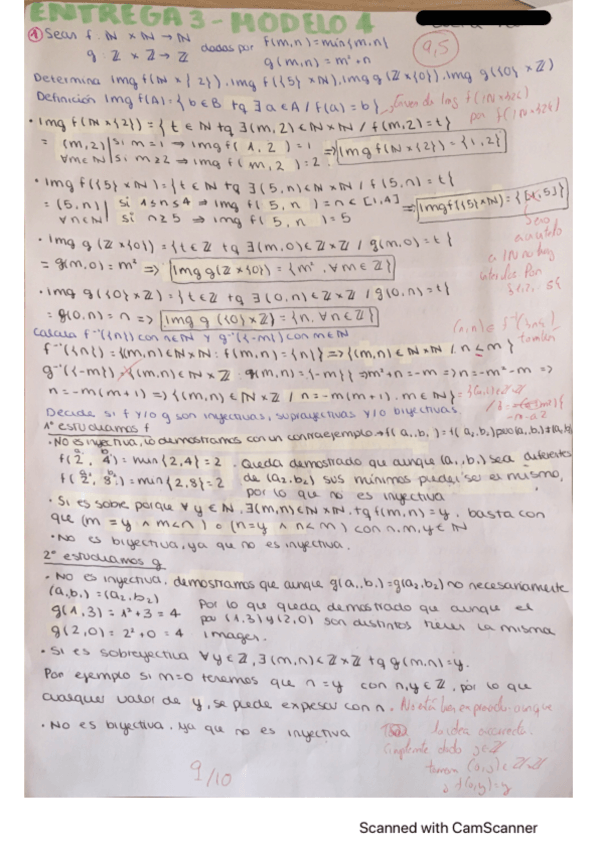 ENTREGA 3 - MODELO 4
9,5
① Sean f: ℕ × ℕ → ℕ dadas por f(m,n) = min{m,n}
g: ℤ × ℤ → ℤ g(m,n) = m² + n
Determina Img f(ℕ × {2}), Img f({5} × ℕ), Img g(ℤ × {0}), Img g({0} × ℤ)
Definición Img f(A) = {b ∈ B tq ∃ a ∈ A / f(a) = b}
por f(ℕ×{2})
· Img f(ℕ × {2}) = {t ∈ ℕ tq ∃(m,2) ∈ ℕ × ℕ / f(m,2) = t}
= (m,2) | si m = 1 ⇒ Img f(1,2) = 1 ⇒ Img f(ℕ × {2}) = {1,2}
∀m ∈ ℕ | si m ≥ 2 ⇒ Img f(m,2) = 2
· Img f({5} × ℕ) = {t ∈ ℕ tq ∃(5,n) ∈ ℕ × ℕ / f(5,n) = t}
= (5,n) | si 1 ≤ n ≤ 4 ⇒ Img f(5,n) = n ∈ [1,4] ⇒ Img f({5} × ℕ) =
∀n ∈ ℕ | si n ≥ 5 ⇒ Img f(5,n) = 5
· Img g(ℤ × {0}) = {t ∈ ℤ tq ∃(m,0) ∈ ℤ × ℤ / g(m,0) = t}
= g(m,0) = m² ⇒ Img g(ℤ × {0}) = {m², ∀m ∈ ℤ}
· Img g({0} × ℤ) = {t ∈ ℤ tq ∃(0,n) ∈ ℤ × ℤ / g(0,n) = t}
= g(0,n) = n ⇒ Img g({0} × ℤ) = {n, ∀n ∈ ℤ}
Calcula f⁻¹({n}) con n ∈ ℕ y g⁻¹({-m}) con m ∈ ℕ
también
f⁻¹({n}) = {(m,n) ∈ ℕ × ℕ : f(m,n) = {n}} ⇒ {(m,n) ∈ ℕ × ℕ / n ≤ m}
g⁻¹({-m}) = {(m,n) ∈ ℕ × ℤ : g(m,n) = {-m}} ⇒ m² + n = -m ⇒ n = -m² - m ⇒
n = -m(m+1) ⇒ {(m,n) ∈ ℕ × ℤ / n = -m(m+1), m ∈ ℕ}
Decide si f y/o g son inyectivas, suprayectivas y/o biyectivas.
1º estudiamos f
· No es inyectiva, lo demostramos con un contraejemplo → f(a₁,b₁) = f(a₂,b₂) pero (a₁,b₁) ≠ (a₂,b₂)
f(2,4) = min{2,4} = 2. Queda demostrado que aunque (a₁,b₁) sea diferentes
f(2,8) = min{2,8} = 2 de (a₂,b₂) sus mínimos puede ser el mismo,
por lo que no es inyectiva
· Si es sobre porque ∀y ∈ ℕ, ∃(m,n) ∈ ℕ × ℕ, tq f(m,n) = y, basta con
que (m = y ∧ m < n) o (n = y ∧ n < m) con n, m, y ∈ ℕ
· No es biyectiva, ya que no es inyectiva.
2º estudiamos g
· No es inyectiva, demostramos que aunque g(a₁,b₁) = g(a₂,b₂) no necesariamente
(a₁,b₁) = (a₂,b₂)
g(1,3) = 1² + 3 = 4 Por lo que queda demostrado que aunque el
g(2,0) = 2² + 0 = 4 par (1,3) y (2,0) son distintos tienen la misma
imagen.
· Si es sobreyectiva ∀y ∈ ℤ, ∃(m,n) ∈ ℤ × ℤ tq g(m,n) = y.
Por ejemplo si m = 0 tenemos que n = y con n, y ∈ ℤ, por lo que
cualquier valor de y, se puede expresar con n. No está bien expresado aunque
la idea es correcta.
· No es biyectiva, ya que no es inyectiva
Simplemente dado y ∈ ℤ
9/10
Scanned with CamScanner